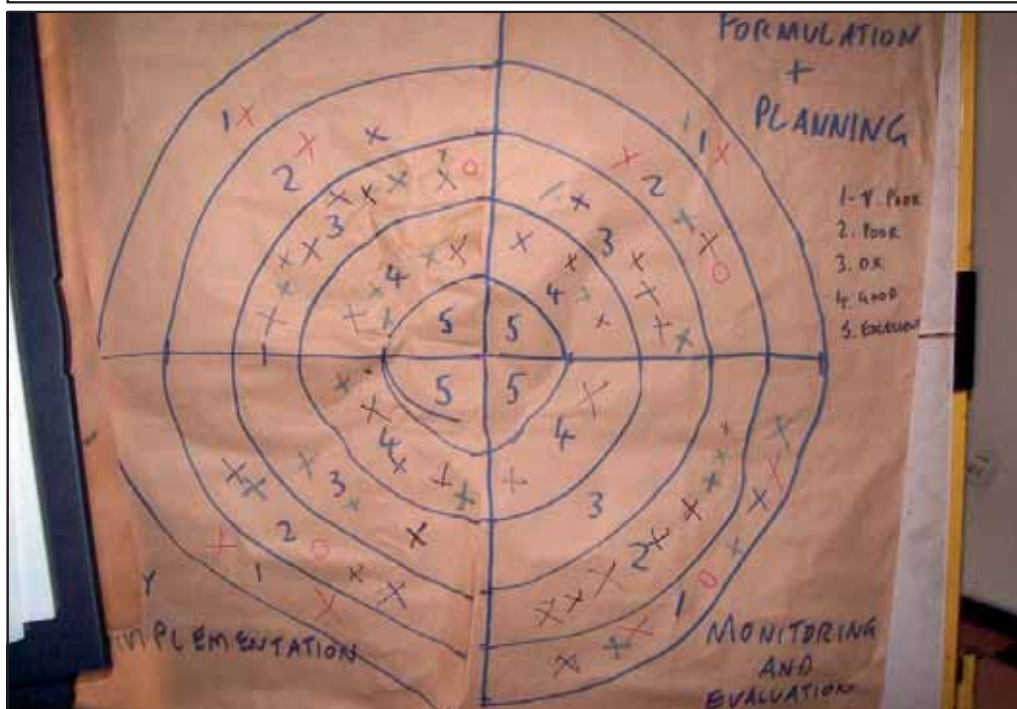 FORMULATION
+
PLANNING
1 - V. POOR
2. POOR
3. OK
4. GOOD
5. EXCELLENT
1
2
3
4
5
1
2
3
4
5
5
4
3
2
1
5
4
3
2
1
IMPLEMENTATION
MONITORING
AND
EVALUATION